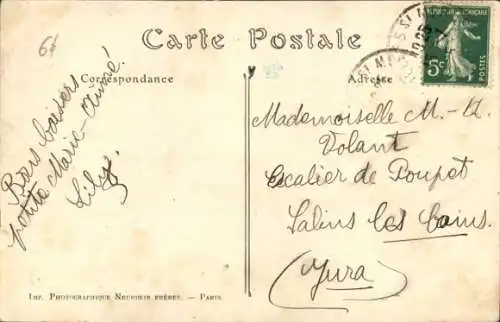 61
Carte Postale
Correspondance
Adresse
Bons baisers
petite Marie-Aimée!
Lily.
Mademoiselle M.-A.
Volant
Escalier de Poupet
Salins les bains
(Jura)
5c
POSTES
IMP. PHOTOGRAPHIQUE NEURDEIN FRÈRES. — PARIS.